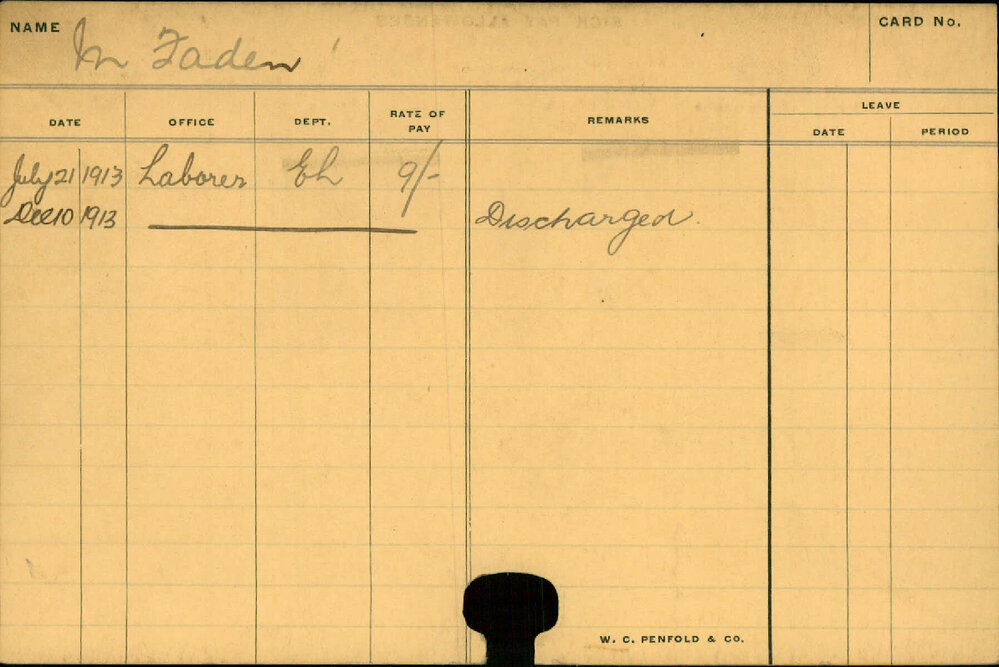 NAME M Faden
CARD No.
DATE OFFICE DEPT. RATE OF PAY REMARKS LEAVE
DATE PERIOD
July 21 1913 Laborer EL 9/-
Dec 10 1913 Discharged.
W. C. PENFOLD & CO.